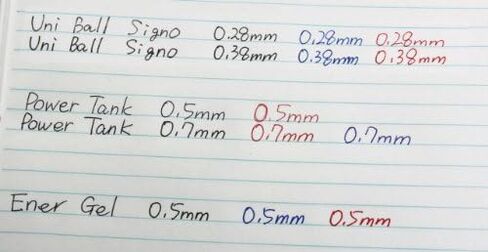 Uni Ball Signo 0.28mm 0.28mm 0.28mm
Uni Ball Signo 0.38mm 0.38mm 0.38mm
Power Tank 0.5mm 0.5mm
Power Tank 0.7mm 0.7mm 0.7mm
Ener Gel 0.5mm 0.5mm 0.5mm